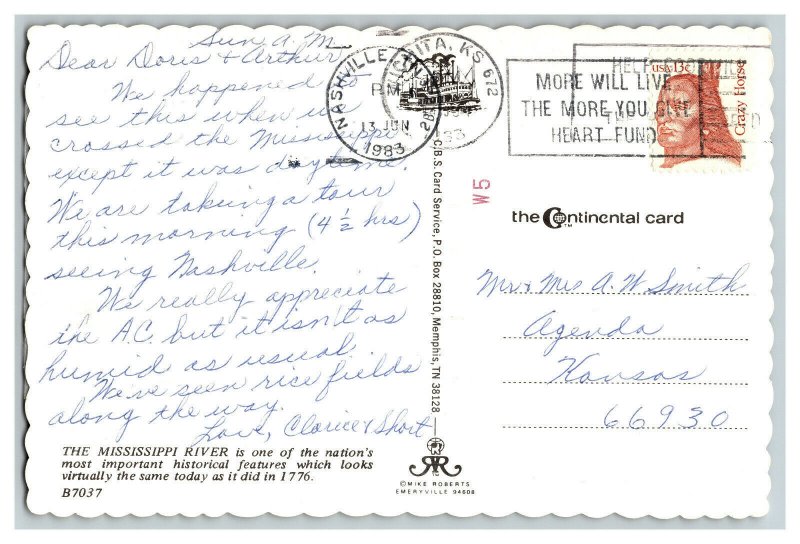 Sun A.M.
Dear Doris & Arthur,
We happened to
see this when we
crossed the Mississippi
except it was daytime.
We are taking a tour
this morning (4 1/2 hrs)
seeing Nashville.
We really appreciate
the A.C. but it isn't as
humid as usual.
We've seen rice fields
along the way.
Love, Clarice & Short
THE MISSISSIPPI RIVER is one of the nation's
most important historical features which looks
virtually the same today as it did in 1776.
B7037
NASHVILLE, TN
PM
13 JUN
1983
WICHITA, KS 672
MORE WILL LIVE
THE MORE YOU GIVE
HEART FUND
HELP
USA 13c
Crazy Horse
C.B.S. Card Service, P.O. Box 28810, Memphis, TN 38128
W5
the Continental card
TM
Mr. & Mrs A. W. Smith
Agenda
Kansas
66930
©MIKE ROBERTS
EMERYVILLE 94608